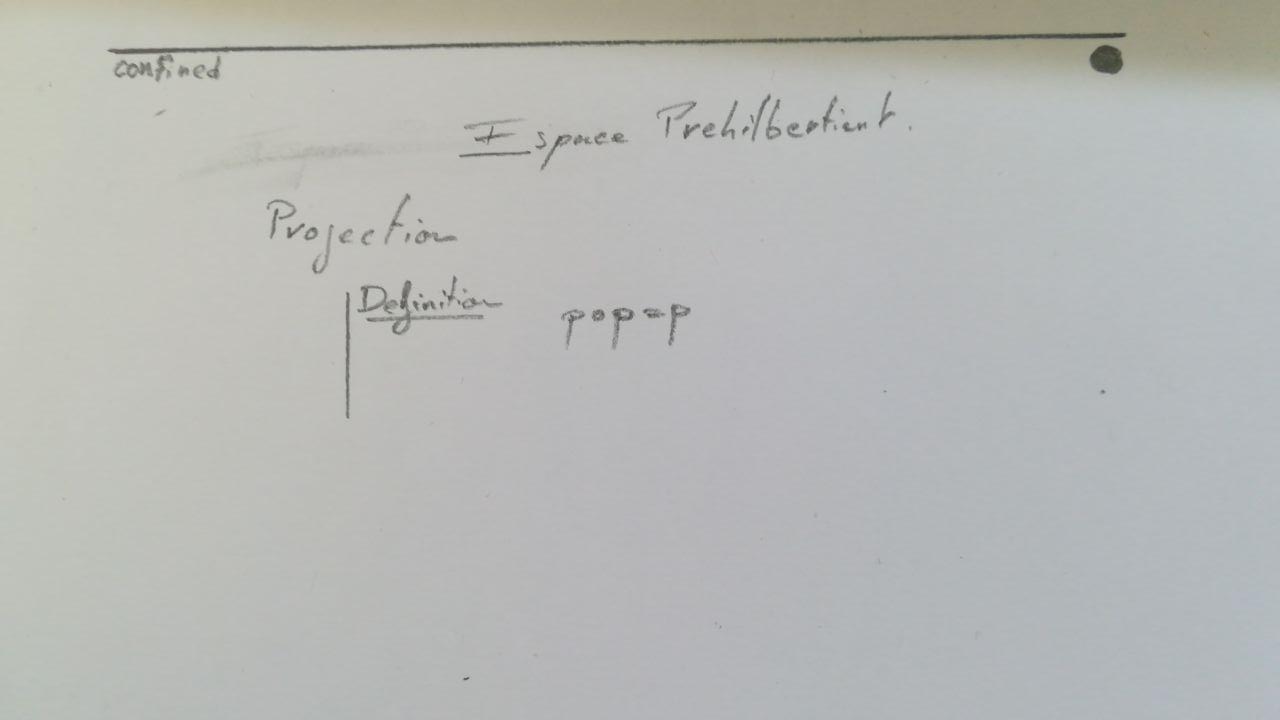 confined
Espace Prehilbertient.
Projection
Definition p∘p=p